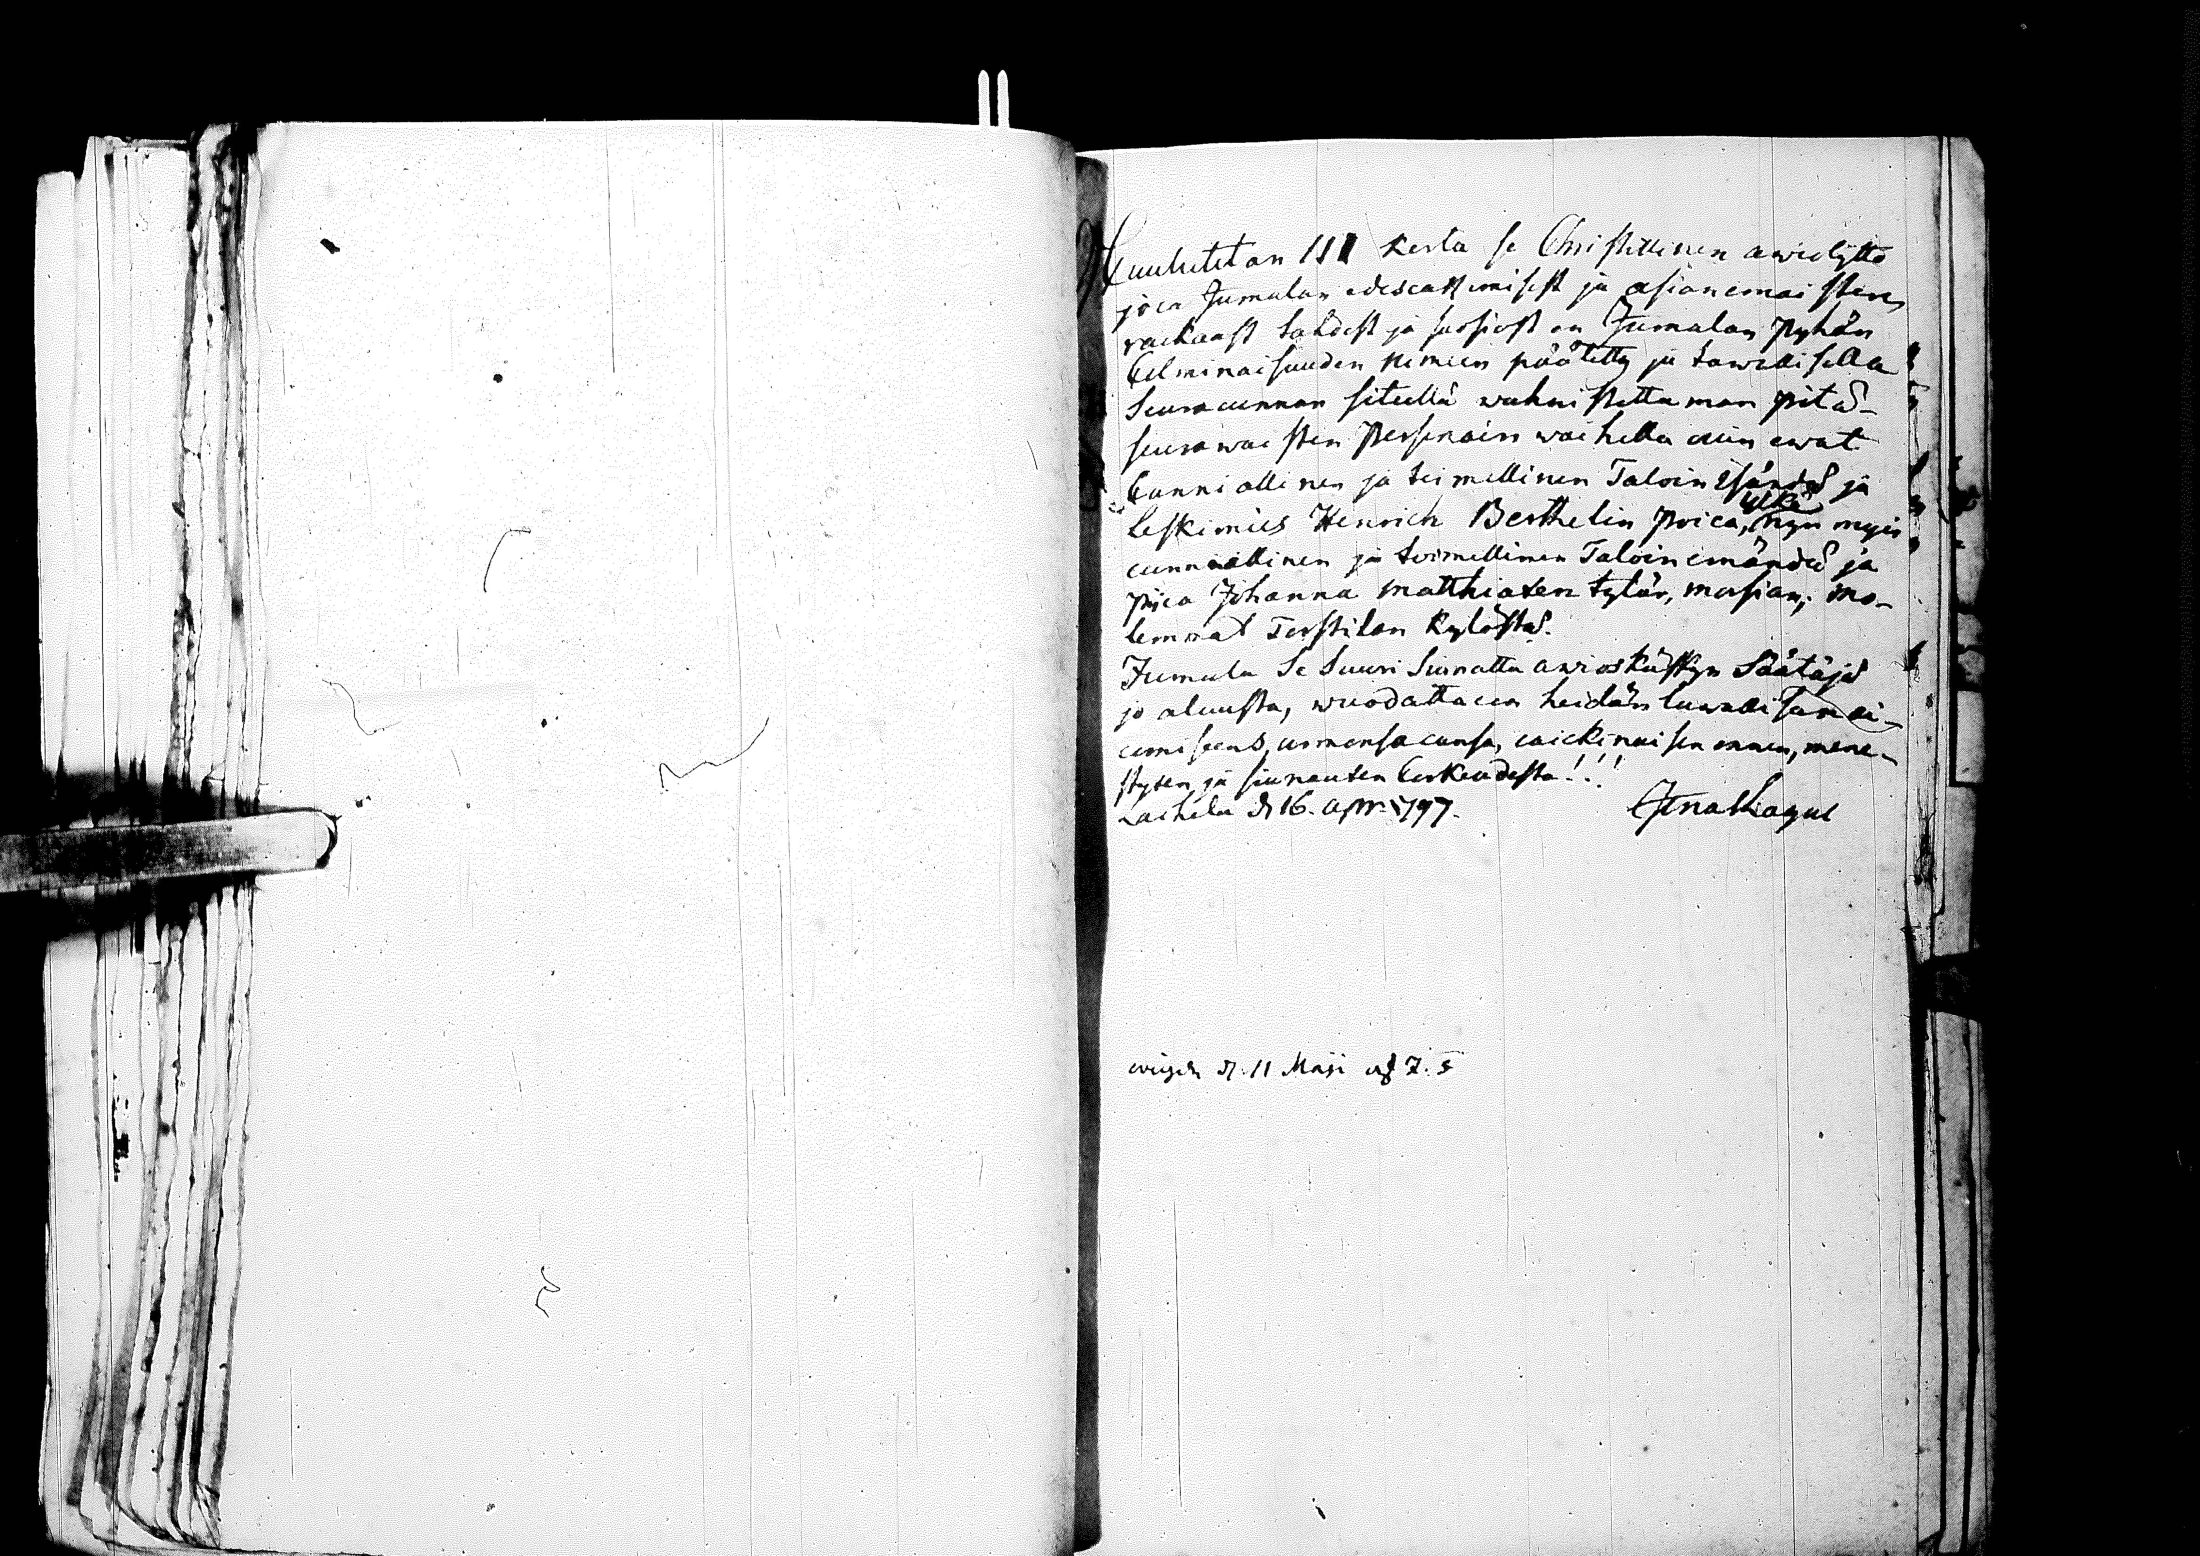 Cuulutetan III kerta se Christillinen awiolijtto
joca Jumalan edescatzomisest ja asianomaisten
rackaast tahdost ja suosiost on Jumalan Pyhän
Colminaisuuden nimeen päätetty ja tawallisella
Seuracunnan siteellä wahwistettaman pitä
seurawaisten Personain waihella cuin owat
Cunniallinen ja toimellinen Taloin Isändä ja
leskimies Henrich Berthelin Poica, nijn myös
cunniallinen ja toimellinen Taloin emändä ja
Pijca Johanna Matthiaxen tytär, mo-
lemmat Torstilan Kyläst.
Jumala Se Suuri Siunattu awioskäskyn Säätäjä
jo alusta, wuodattacon heidän luwallisen ai-
comisens, armonsa cansa, caickinaisen onnen, mene-
styxen ja siunauxen Corkeudesta!!!
Laihela d 16. apr. 1797.
wigde d. 11 Maji af Z. S